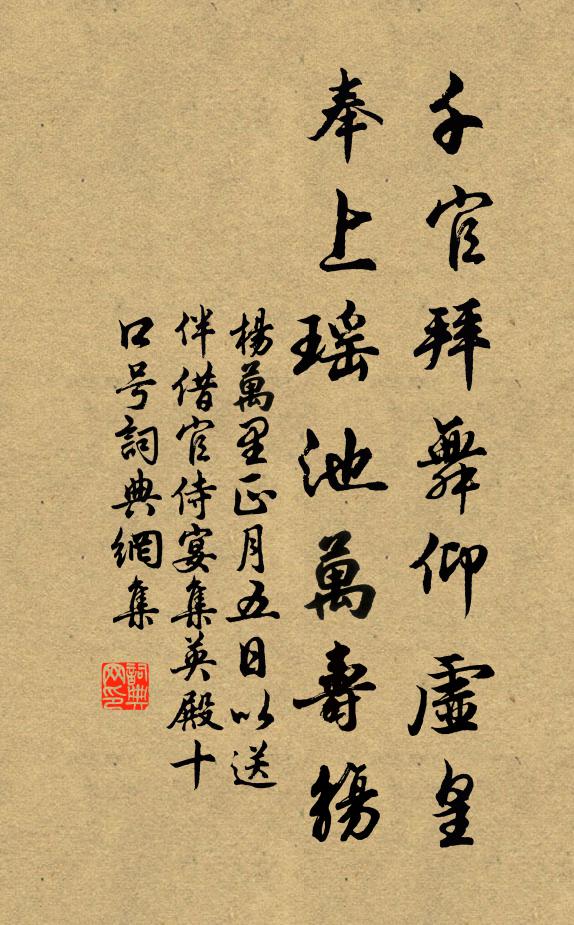 千官拜舞仰虛皇
奉上瑤池萬壽觴
楊萬里正月五日以送
伴借官侍宴集英殿十
口号詞典網集
詞典
网印